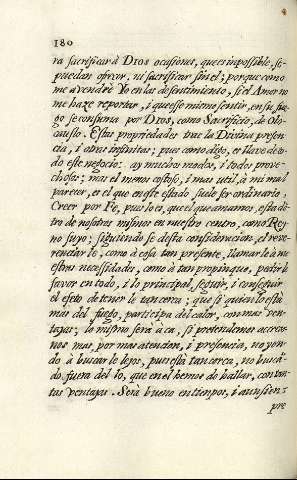 180
ra sacrificar à DIOS ocasiones, que es impossible, se
puedan ofrecer, ni sacrificar sin el; porque como
me avendrè Yo en las de sentimiento, si el Amor no
me haze reportar, i que esso mismo sentir, en su fue
go se consuma por DIOS, como Sacrificio, de Olo
causto. Estas propriedades trae la Divina presen
cia, i otras infinitas; pues como digo, es llave de to
do este negocio: ay muchos modos, i todos prove-
chosos; mas el menos costoso, i mas util, à mi mal
parecer, es el que en este estado suele ser ordinario,
Creer por Fe, pues lo es, que el que amamos, està dẽ
tro de nosotros mismos en nuestro centro, como Rey
no suyo; siguiendose desta consideracion, el reve-
renciarle, como à cosa tan presente, llamarle à nu
estras necessidades, como à tan propinquo, pedirle
favor en todo, i lo principal, seguir, i conseguir
el efeto de tenerle tan cerca; que si quien lo està
mas del fuego, participa del calor, con mas ven
tajas; lo mismo serà acà, si pretendemos acercar
nos mas, por mas atencion, i presencia, no yen-
do à buscarle lejos, pues està tan cerca, no buscã
do fuera del lo, que en el hemos de hallar, con tan-
tas ventajas. Serà bueno en tiempos, i aun siem-
pre